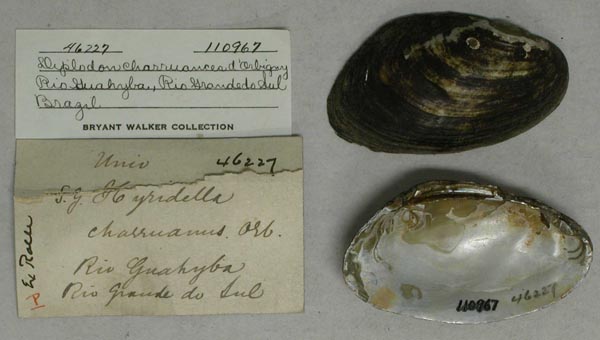 46227 110967
Diplodon charruanus d'Orbigny
Rio Guahyba, Rio Grande do Sul
Brazil
BRYANT WALKER COLLECTION
Unio 46227
S.g. Hyridella
charruanus. Orb.
Rio Guahyba
Rio Grande do Sul
Ex
110967 46227